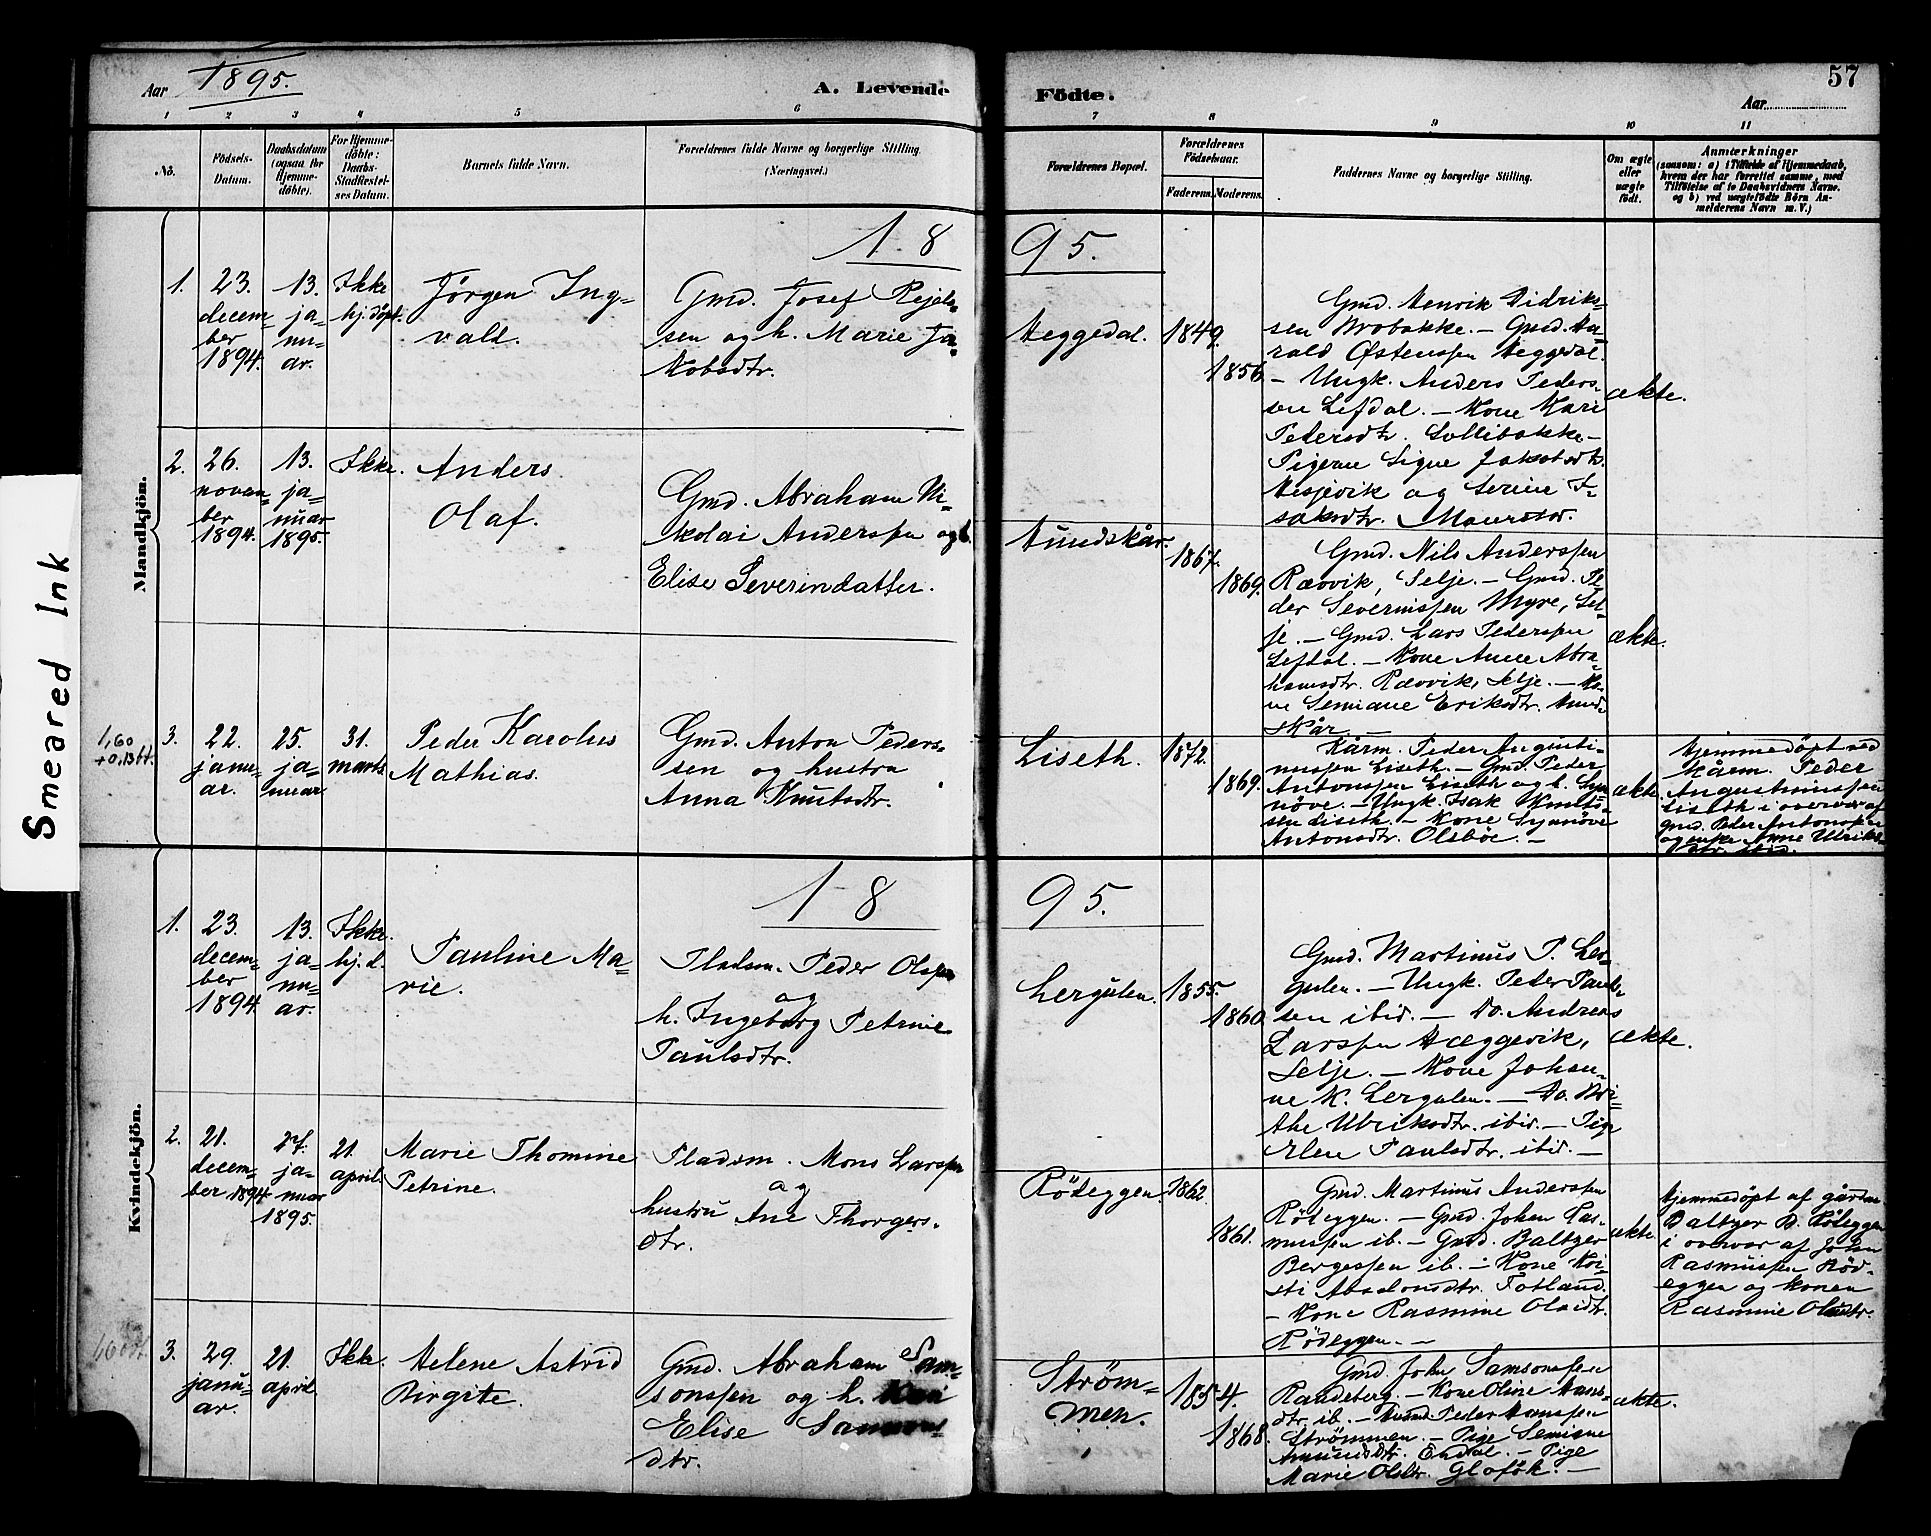 Aar 1895.
A. Levende
Födte.
57
Aar
1 2 3 4 5 6 7 8 9 10 11
No.
Födsels-
Datum.
Daabsdatum
(ogsaa for
Hjemme-
döbte).
For Hjemme-
döbte:
Daabs-
Stadfæstel-
ses Datum.
Barnets fulde Navn.
Forældrenes fulde Navne og borgerlige Stilling.
(Næringsvei.)
Forældrenes Bopæl.
Forældrenes
Födselsaar.
Faderens. Moderens.
Faddernes Navne og borgerlige Stilling.
Om ægte
eller
uægte
födt.
Anmærkninger
(saasom: a) i Tilfælde af Hjemmedaab,
hvem der har forrettet samme, med
Tilföielse af to Daabsvidners Navne.
og b) ved uægtefödte Börn An-
melderens Navn m. V.)
Smeared Ink
Mandkjön.
18
95.
1.
23.
decem-
ber
1894.
13.
ja-
nu-
ar.
Ikke
hj. döpt.
Jörgen Ing-
vald.
Gmd. Josef Rejels-
sen og h. Marie Ja-
kobsdtr.
Heggedal.
1849.
1856.
Gmd. Henrik Didrik-
sen Brobakke. – Gmd. Ha-
rald Østenssen Heggedal.
– Ungk. Anders Peders-
sen Lefdal. – Kone Kari
Pedersdtr. Lollibakke –
Pigerne Signe Jakobsdtr.
Hesjevik og Serine I-
saksdtr. Maurstad.
ækte.
2.
26.
novem-
ber
1894.
13.
ja-
nuar
1895.
Ikke.
Anders
Olaf.
Gmd. Abraham Ni-
kolai Anderssen og h.
Elise Severindatter.
Hundskår.
1867.
1869.
Gmd. Nils Anderssen
Rævvik, Selje. – Gmd. Pe-
der Severinssen Myre, Sel-
je. – Gmd. Lars Pederssen
Lefdal. – Kone Anne Abra-
hamsdtr. Rævvik, Selje. – Ko-
ne Semiane Eriksdtr. Hund-
skår.
ækte.
1,60
3.
22.
janu-
ar.
25.
ja-
nuar
31.
marts
Peder Karolus
Mathias.
Gmd. Anton Peders-
sen og hustru
Anna Knutsdtr.
Liseth.
1872.
1869.
Kårm. Peder Augusti-
nussen Liseth. – Gmd. Peder
Antonssen Liseth og h. Syn-
növe. – Ungk. Isak Knuts-
sen Liseth. – Kone Synnöve
Antonsdtr. Olsböe. –
ækte.
Hjemmedöpt ved
kårm. Peder
Augustinussen
Liseth i overvær af
gmd. Peder Antonssen
og enke Anne Ulriks-
dtr. ibid.
Kvindekjön.
18
95.
1.
23.
decem-
ber
1894.
13.
ja-
nu-
ar.
Ikke.
hj. d.
Pauline Ma-
rie.
Pladsm. Peder Olssen
og
h. Ingeborg Petrine
Paulsdtr.
Lergulen.
1855.
1860.
Gmd. Martinus P. Ler-
gulen. – Ungk. Peter Pauls-
sen ibid. – Do. Andreas
Larssen Hæggevik,
Selje. – Kone Johan-
ne K. Lergulen. – Do. Bri-
the Ulriksdtr. ibid. – Pige
Elen Paulsdtr. ibid. –
ækte.
2.
21.
decem-
ber 1894.
27.
ja-
nuar
1895.
21.
april.
Marie Thomine
Petrine.
Pladsm. Mons Larssen
og
hustru Ane Thorgers-
dtr.
Rödeggen.
1862.
1861.
Gmd. Martinus Anderssen
Rödeggen. – Gmd. Johan Ras-
mussen ib. – Gmd. Baltzer
Bergessen ib. – Kone Kri-
sti Absalonsdtr. Totland.
– Kone Rasmine Olaidtr.
Rödeggen. –
ækte.
Hjemmedöpt af gårdm.
Baltzer B. Rödeggen
i overvær af Johan
Rasmussen Röd-
eggen og konen
Rasmine Olaidtr.
3.
29.
janu-
ar.
21.
april.
Ikke.
Helene Astrid
Birgite.
Gmd. Abraham Sam-
sonssen og h.
Elise
dtr.
Ström-
men.
1854.
1868.
Gmd. John Samsonssen
Randeberg. – Kone Oline Hans-
dtr. ib. – Peder Hanssen
Strömmen. – Pige Semine
Endal. – Pige
Marie
ækte.